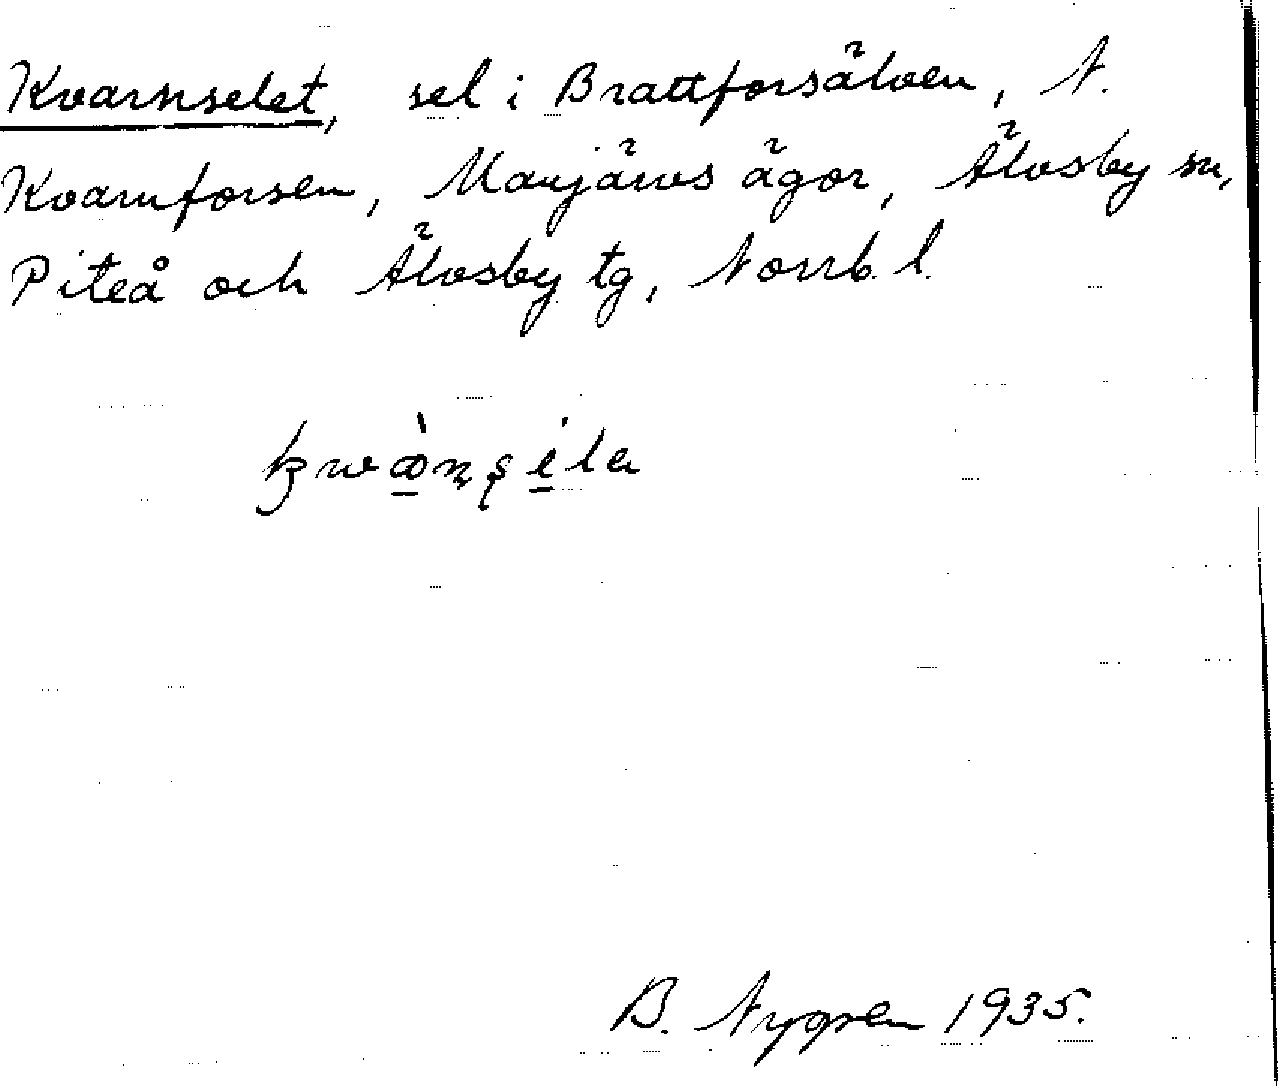 Kvarnselet, sel i Brattforsälven, N.
Kvarnforsen, Manjärvs ägor, Älvsby sn,
Piteå och Älvsby tg, Norrb. l.
B. Nygren 1935.